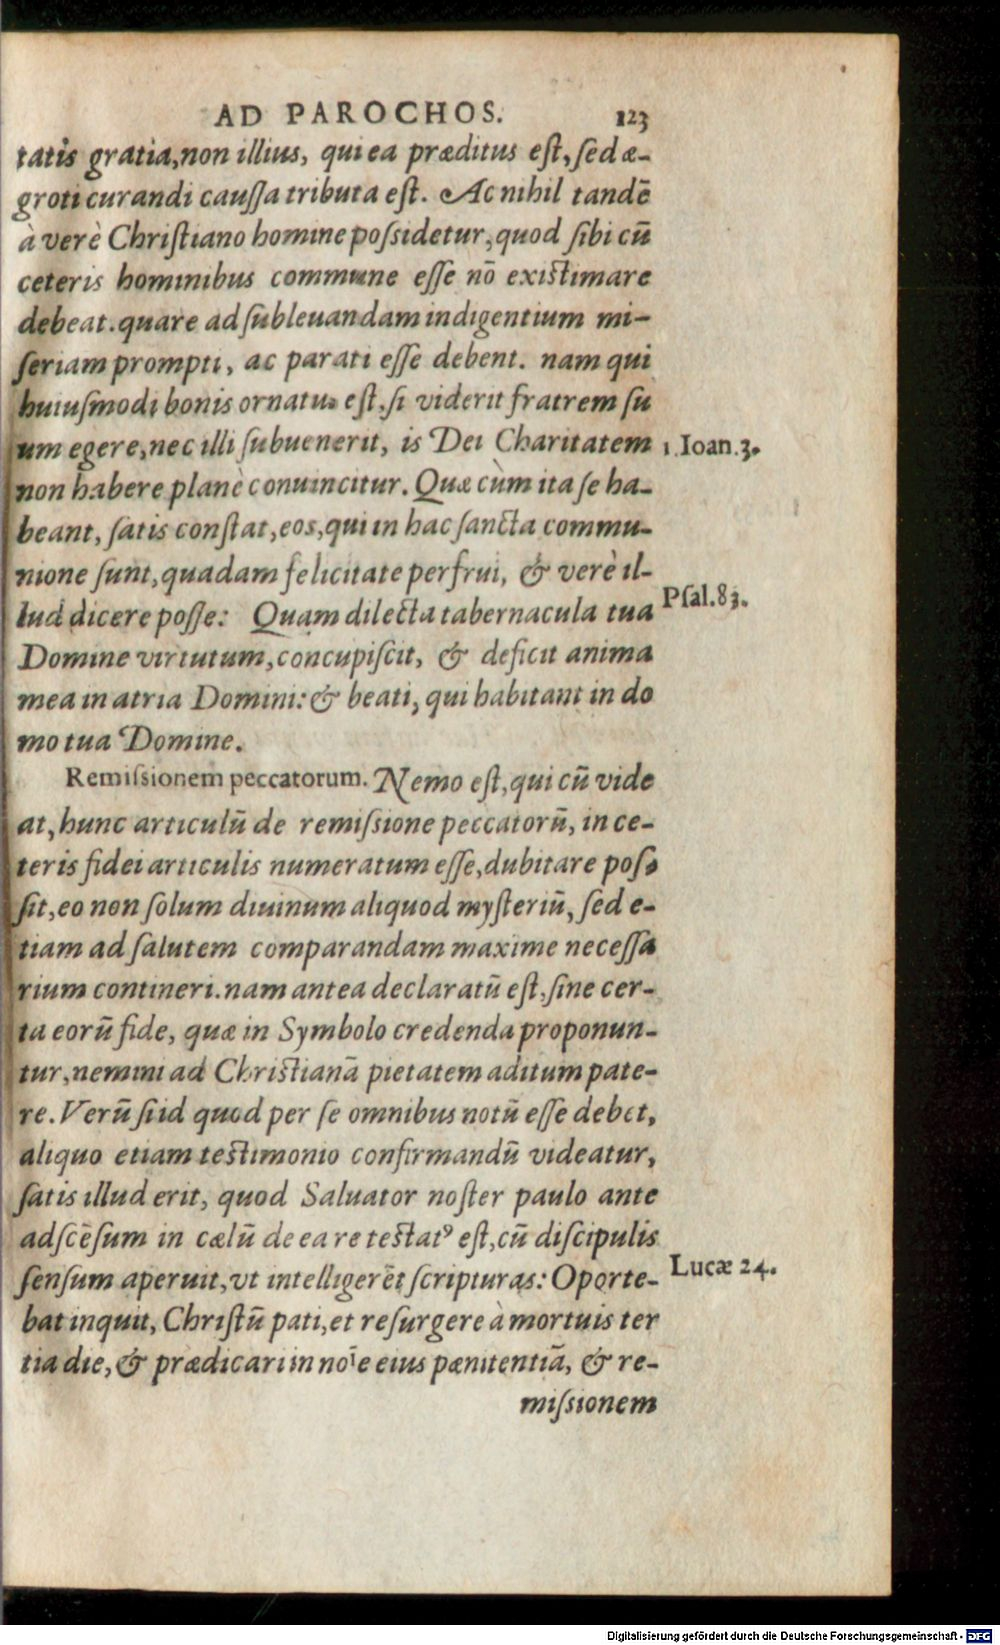 AD PAROCHOS. 123
tatis gratia, non illius, qui ea præditus eſt, ſed æ-
groti curandi cauſſa tributa eſt. Ac nihil tandē
à verè Chriſtiano homine poſsidetur, quod ſibi cū
ceteris hominibus commune eſſe nō existimare
debeat. quare ad ſubleuandam indigentium mi-
ſeriam prompti, ac parati eſſe debent. nam qui
huiuſmodi bonis ornatus eſt, ſi viderit fratrem ſu
um egere, nec illi ſubuenerit, is Dei Charitatem
1. Ioan. 3.
non habere planè conuincitur. Quæ cùm ita ſe ha-
beant, ſatis conſtat, eos, qui in hac ſancta commu-
nione ſunt, quadam felicitate perfrui, & verè il-
lud dicere poſſe: Quam dilecta tabernacula tua
Pſal. 83.
Domine virtutum, concupiſcit, & deficit anima
mea in atria Domini: & beati, qui habitant in do
mo tua Domine.
Remiſsionem peccatorum. Nemo eſt, qui cū vide
at, hunc articulū de remiſsione peccatorū, in ce-
teris fidei articulis numeratum eſſe, dubitare poſ-
ſit, eo non ſolum diuinum aliquod myſteriū, ſed e-
tiam ad ſalutem comparandam maxime neceſſa
rium contineri. nam antea declaratū eſt, ſine cer-
ta eorū fide, quæ in Symbolo credenda proponun-
tur, nemini ad Christianā pietatem aditum pate-
re. Verū ſi id quod per ſe omnibus notū eſſe debet,
aliquo etiam testimonio confirmandū videatur,
ſatis illud erit, quod Saluator noſter paulo ante
adſcēſum in cælū de ea re testatꝰ eſt, cū diſcipulis
ſenſum aperuit, vt intelligerēt ſcripturas: Oporte-
Lucæ 24.
bat inquit, Chriſtū pati, et reſurgere à mortuis ter
tia die, & prædicari in noīe eius pænitentiā, & re-
miſsionem
Digitalisierung gefördert durch die Deutsche Forschungsgemeinschaft - DFG